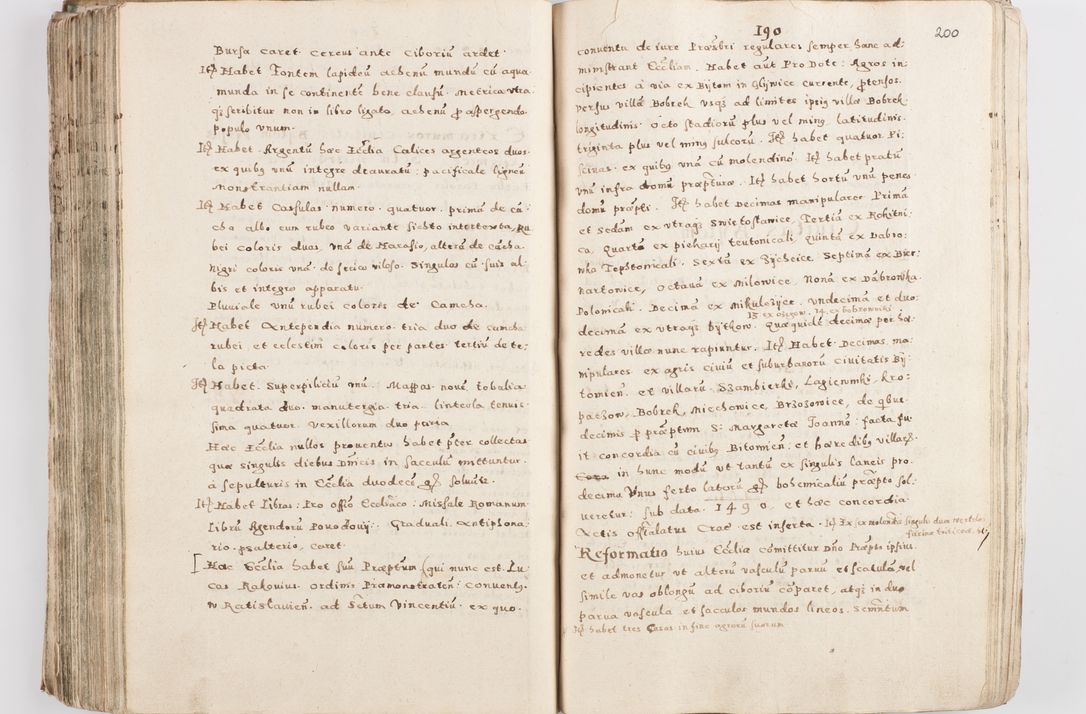 Bursa caret. Cereus ante Ciboriũ ardet.
Itẽ Habet Fontem lapideũ aehenũ mundũ cũ aqua
munda in se continentẽ bene clausũ. Metrica vtra
qʒ scribitur non in libro ligato, aehenũ p aspergendo
populo vnum.
Itẽ Habet Argentũ haec Ecclia Calices argenteos duos
ex quibʒ vnũ integre deauratũ: pacificale ligneũ
Monstrantiam nullam.
Itẽ Habet Cassulas numero quatuor. primã de cã
cha albo cum rubeo variante siesto intertexta, Ru
bei coloris duas, vnã de Harasio, alterã de cãcha.
Nigri coloris vnã de serico viloso. Singulas cũ suis al
bis et integro apparatu.
Pluviale vnũ rubei colores de Camcha.
Itẽ Habet Antependia numero tria duo de camcha
rubei et celestini coloris per partes tertiũ de te
la picta
Itẽ Habet Superpiliciũ vnũ. Mappas nouẽ tobalia
quadrata duo. manutergia tria. linteola tenuis
sima quatuor. Vexillorum duo paria
Haec Ecclia nullos prouentus habet pter collectas
quae singulis diebus Dnicis in sacculũ mittuntur.
à sepulturis in Ecclia duodecẽ gł soluitr.
Itẽ Habet Libros: Pro offio Ecclaco: Missale Romanum
Librũ Agendorũ Povodouÿ: Graduali. Antiphona
rio. psalterio, caret.
[Haec Ecclia habet suũ Praeptum (qui nunc est Lu
cas Rakouius ordinis Pramonstraten: conuentʒ
W Ratislauien. ad Sctum Vincentiũ. ex quo.
190
200
conuentu de iure Praesbri regulares semper hanc ad:
ministrant Eccliam. Habet aut Pro Dote: Agros in:
cipientes à via ex Bÿtom in Glÿwice currente, ptensos
versus villã Bobrek vsqʒ ad limites ipsiʒ villae Bobrek
longitudinis Octo stadiorũ plus vel minʒ latitudinis
triginta plus vel minʒ sulcorũ. Itẽ habet quatuor Pi:
scinas ex quibʒ vnã cũ molendino. Itẽ habet pratũ
vnũ infra domũ praepturae. Itẽ habet hortũ vnũ penes
domũ praepti. Itẽ habet Decimas manipulares Primã
et Sedam ex vtraqʒ Swietoslawice, Tertiã ex Rokitni:
ca. Quartã ex piekarÿ teutonicali, quintã ex Dabro:
wka Tepstonicali. Sextã ex Zÿcheice. Septimã ex Bier:
nartowice, Octauã ex Milowice, Nonã ex Dãbrowka
Polonicali. Decimã ex Mikulezÿce. vndecimã et duo:
decimã ex vtraqʒ Bÿtkow. 13. ex ossrow. 14. ex bobrowniki Quae quidẽ decimae per hae:
redes villae nunc rapiuntur. Itẽ Habet Decimas ma:
nipulares ex agris ciuiũ et suburbanorũ ciuitatis Bÿ:
tomien. ex villarũ Szambierki, Lagiewniki. Kro:
paczow, Bobrek, Miechowice, Brzozowice, de qbus
decimis p praeptum S: Margaretae Joannẽ: facta fu:
it concordia cũ ciuibʒ Bitomien. et haeredibʒ villarʒ
in hunc modũ vt tantũ ex singulis laneis pro
decima Vnus ferto latorũ gł bohemicaliũ praepto sol:
ueretur: sub data. 1490. et haec concordia
Actis offialatus Crac est inserta. Itẽ Ex sex molendis singulis duas mertelas farinae triticeae. et
Reformatio huius Eccliae cõmittitur dño Praepto ipsius.
et admonetur vt alterũ vasculũ paruũ et scatulã vel
simile vas oblongũ ad ciboriũ cõparet, atqʒ in duo
parua vascula et sacculos mundos lineos. Scmntum
Itẽ habet tres Casas in fine agrorũ suorum